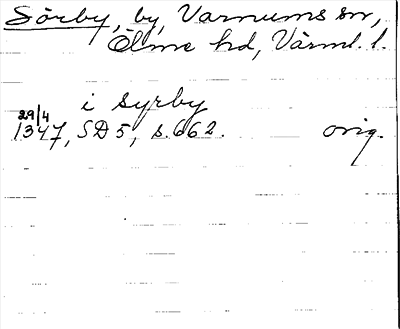 Sörby, by, Varnums sn,
Ölme hd, Värml. l.
i syrby
29/4
1347, SD 5, s. 662. orig.